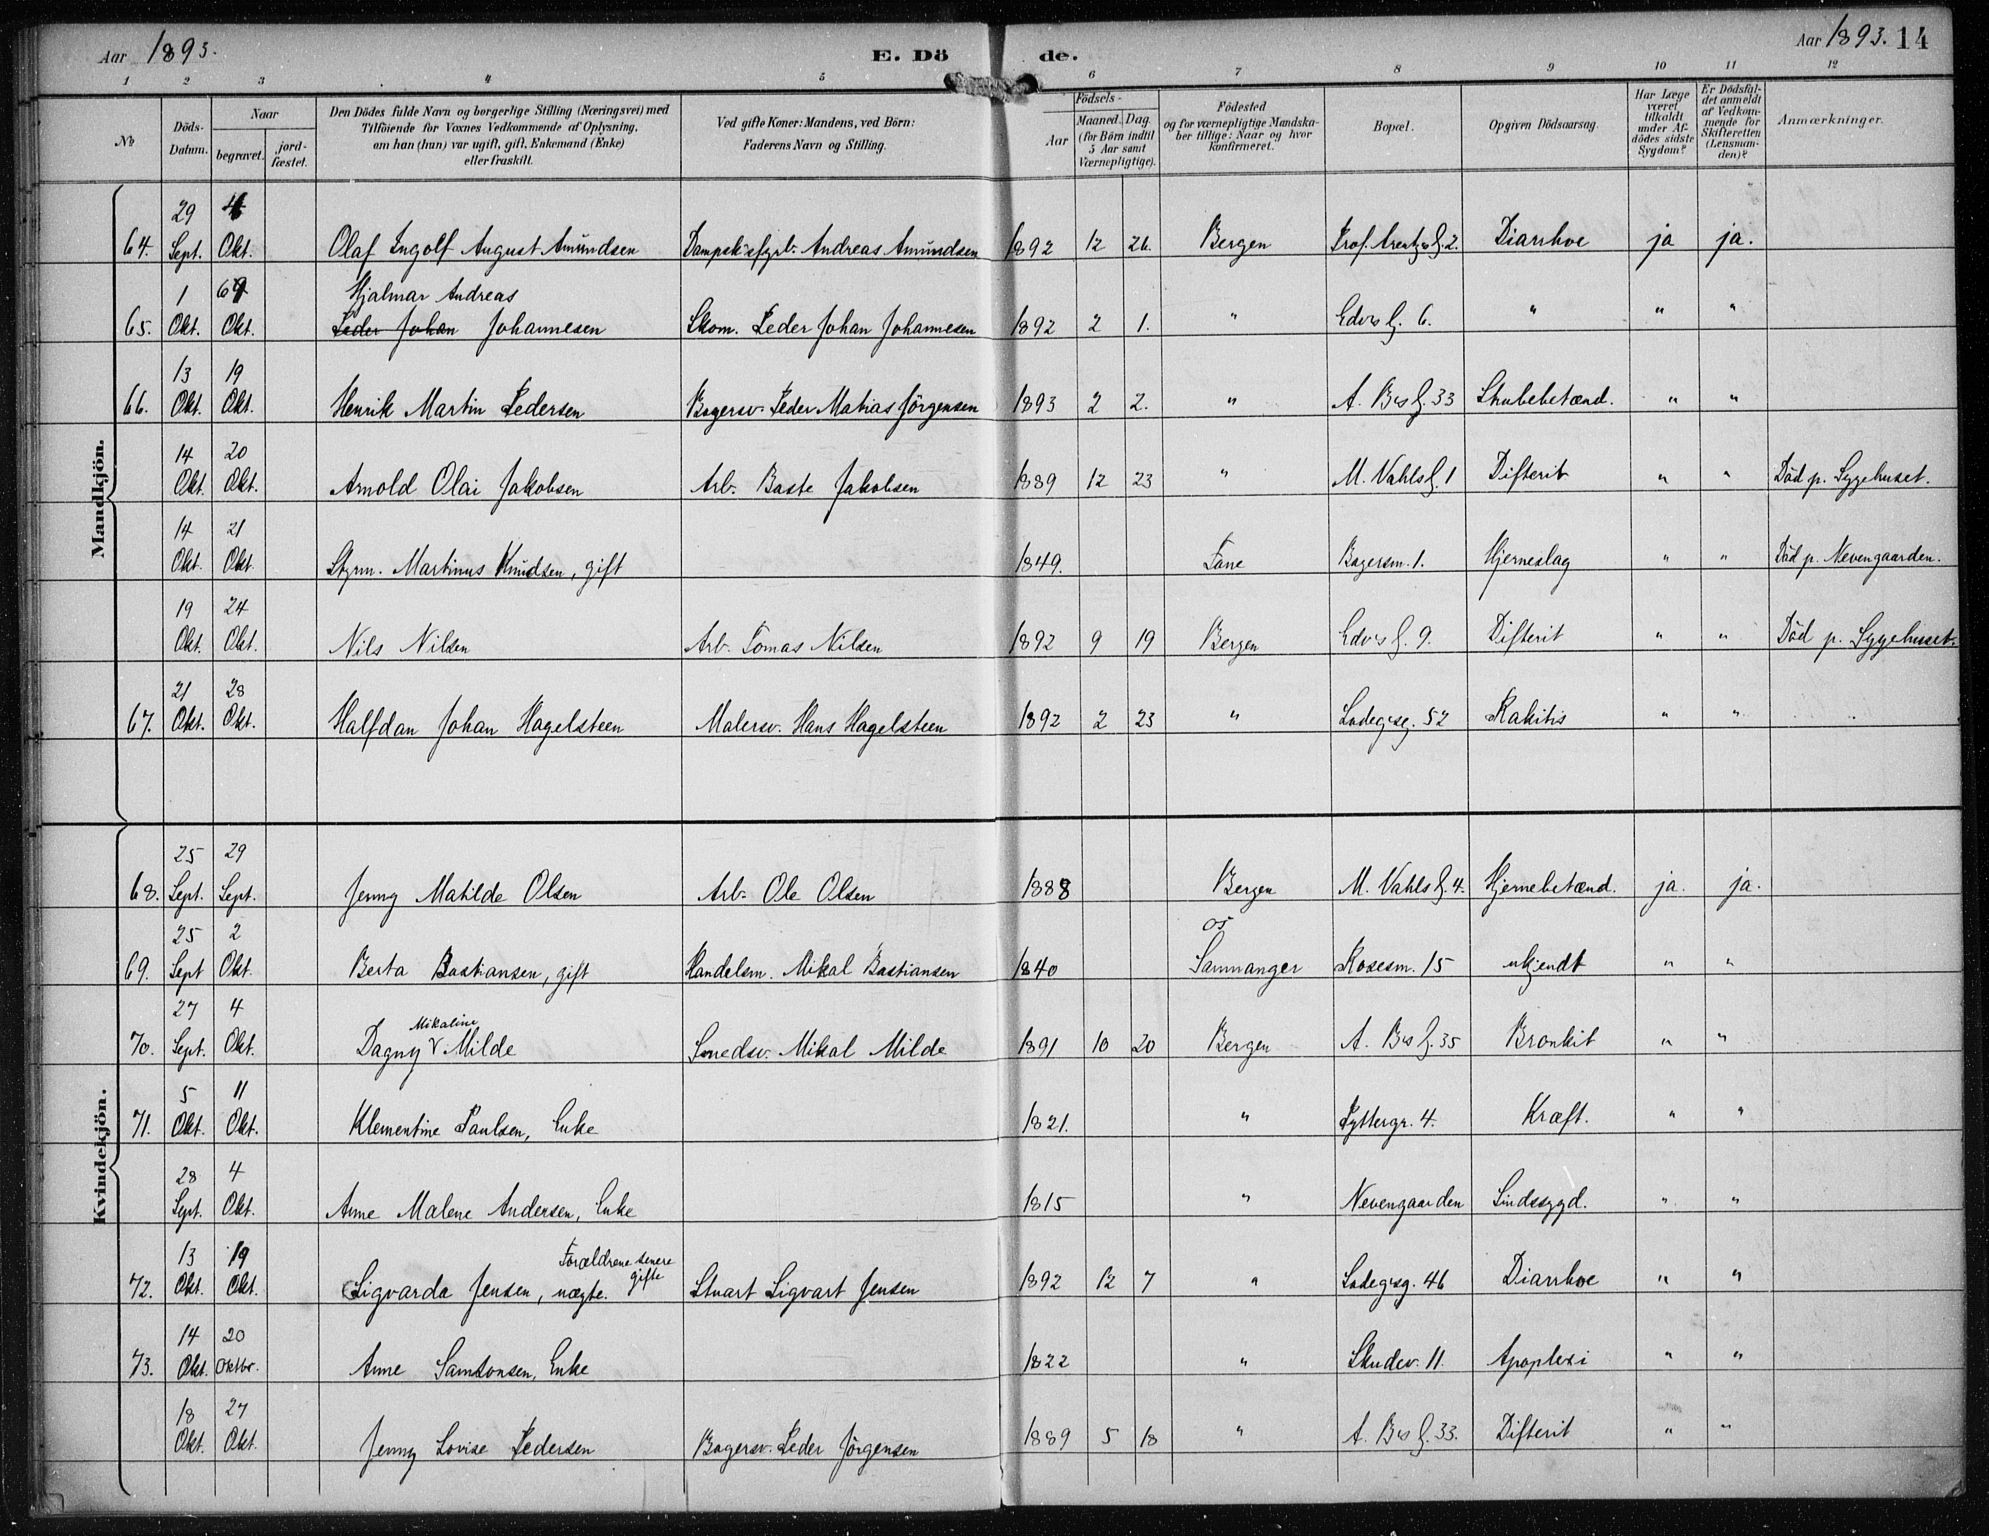 Aar 1893.
E. Dö de.
Aar 1893. 14
1 2 3 4 5 6 7 8 9 10 11 12
No
Döds-Datum.
Naar
begravet.
jord-fæstet.
Den Dödes fulde Navn og borgerlige Stilling (Næringsvei) med
Tilföiende for Voxnes Vedkommende af Oplysning,
om han (hun) var ugift, gift, Enkemand (Enke)
eller fraskilt.
Ved gifte Koner: Mandens, ved Börn:
Faderens Navn og Stilling.
Födsels-
Aar
Maaned. Dag.
(for Börn indtil
5 Aar samt
Værnepligtige).
Födested
og for værnepligtige Mandska-
ber tillige: Naar og hvor
konfirmeret.
Bopæl.
Opgiven Dödsaarsag.
Har Læge
været
tilkaldt
under Af-
dödes sidste
Sygdom?
Er Dödsfal-
det anmeldt
af Vedkom-
mende for
Skifteretten
(Lensman-
den)?
Anmærkninger.
Mandkjön.
29 4
64. Sept. Okt. Olaf Ingolf August Amundsen Andreas Amundsen 1892 12 26. Bergen Prof. Arentzs G. 2. Diarrhoe ja ja.
1 6 Hjalmar Andreas
65. Okt. Okt. Peder Johan Johannesen Skom. Peder Johan Johannesen 1892 2 1. " Edvs G. 6. " " "
13 19
66. Okt. Okt. Henrik Martin Pedersen Bagersv. Peder Matias Jörgensen 1893 2 2. " A. Bs G. 33 Strubebetænd. " "
14 20
Okt. Okt. Arnold Olai Jakobsen Arb. Baste Jakobsen 1889 12 23 " M. Vahls G. 1 Difterit " " Död p. Sygehuset.
14 21
Okt. Okt. Styrm. Martinus Knudsen, gift 1849. Fane Bagersm. 1. Hjerneslag " " Död p. Nevengaarden.
19 24
Okt. Okt. Nils Nilsen Arb. Tomas Nilsen 1892 9 19 Bergen Edvs G. 9. Difterit " " Död p. Sygehuset.
21 28
67. Okt. Okt. Halfdan Johan Hagelsteen Malersv. Hans Hagelsteen 1892 2 23 " Ladegsg. 52 Rakitis " "
Kvindekjön.
25 29
68. Sept. Sept. Jenny Matilde Olsen Arb. Ole Olsen 1888 Bergen M. Vahls G. 4. Hjernebetænd. ja. ja.
25 2 Os
69. Sept Okt. Berta Bastiansen, gift Handelsm. Mikal Bastiansen 1840 Samnanger Rosesm. 15 ukjendt " "
27 4 Mikaline
70. Sept. Okt. Dagny V Milde Smedsv. Mikal Milde 1891 10 20 Bergen A. Bs G. 35 Bronkit " "
5 11
71. Okt. Okt. Klementine Paulsen, Enke 1821. " Pyttergr. 4. Kræft. " "
28 4
Sept. Okt. Anne Malene Andersen, Enke 1815 " Nevengaarden Sindssygd. " "
13 19 Forældrene senere gifte
72. Okt. Okt. Sigvarda Jensen, uægte. Stuart Sigvart Jensen 1892 12 7 " Ladegsg. 46 Diarrhoe " "
14 20
73. Okt. Oktbr. Anne Samsonsen, Enke 1822 " Skudev. 11. Apoplexi " "
18 27
Okt. Okt. Jenny Lovise Pedersen Bagersv. Peder Jörgensen 1889 5 18 " A. Bs G. 33. Difterit " "